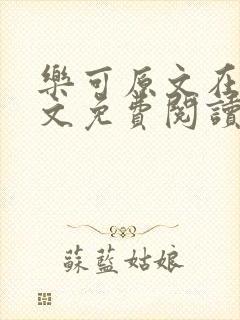 樂可原文在
文免費閱讀
蘇藍姑娘